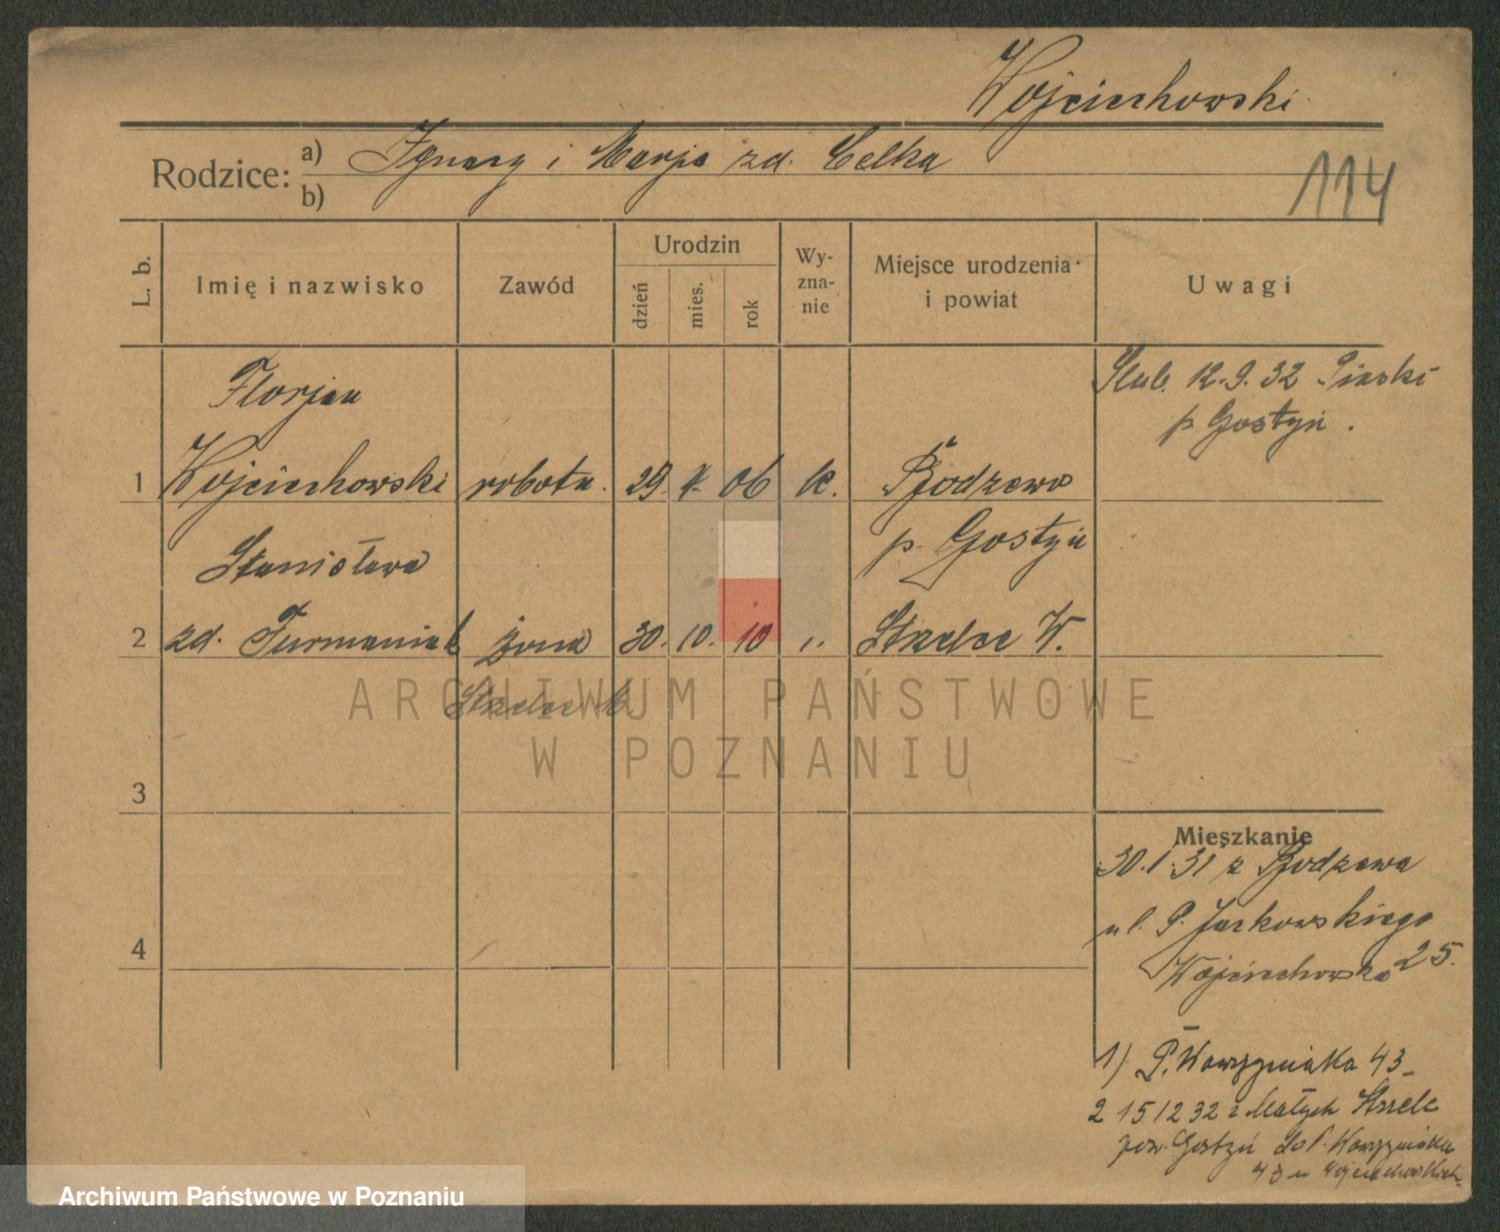 Wojciechowski
Rodzice: a) Ignacy i Marja zd. Celka
b)
114
L. b.
Imię i nazwisko
Zawód
Urodzin
dzień
mies.
rok
Wy-
zna-
nie
Miejsce urodzenia
i powiat
Uwagi
Florjan
1 Wojciechowski robotn. 29. 06 k. Podrzewo
p. Gostyń
Ślub. 12.9.32 Piaski
p Gostyń.
Stanisława
2 zd. Furmaniak żona 30. 10. 10 ,, Strzelce W.
3
4
Mieszkanie
30.1.31 z
ul. P. Jackowskiego
Wojciechowska 25.
1) P. Wawrzyniaka 43
2 15 12 32 z Małych Strzelc
pow. Gostyń do P. Wawrzyniaka
43 u Wojciechowskich
ARCHIWUM PAŃSTWOWE
W POZNANIU
Archiwum Państwowe w Poznaniu